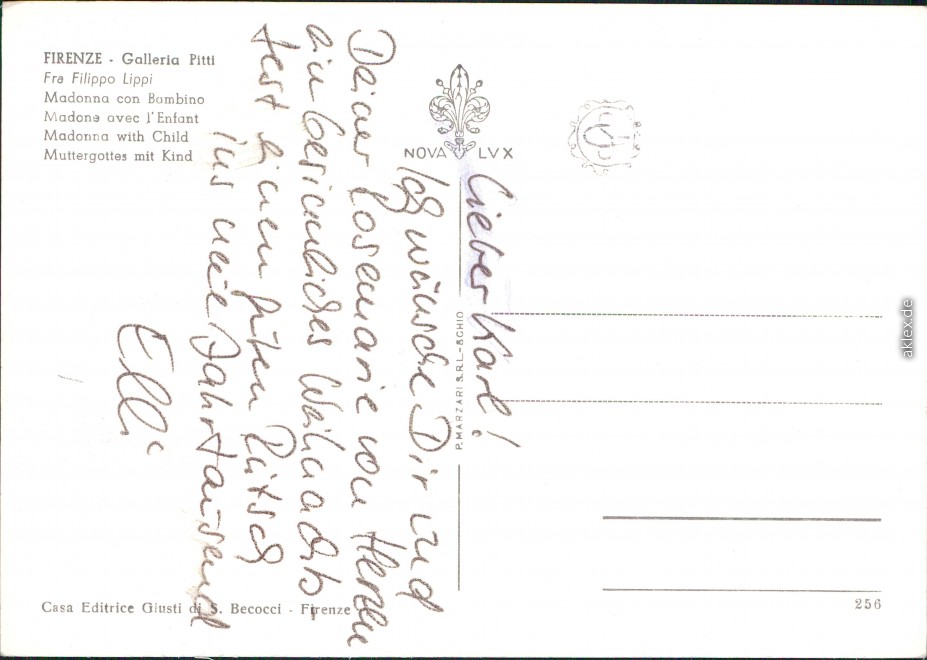 FIRENZE - Galleria Pitti
Fra Filippo Lippi
Madonna con Bambino
Madone avec l'Enfant
Madonna with Child
Muttergottes mit Kind
NOVA LVX
Lieber Karl!
Ich wünsche Dir und
Deiner Rosemarie von Herzen
ein besinnliches Weihnachts
fest einen guten Rutsch
ins neue Jahrtausend
Elli
P. MARZARI S.R.L. - SCHIO
Casa Editrice Giusti di S. Becocci - Firenze
256
aklex.de